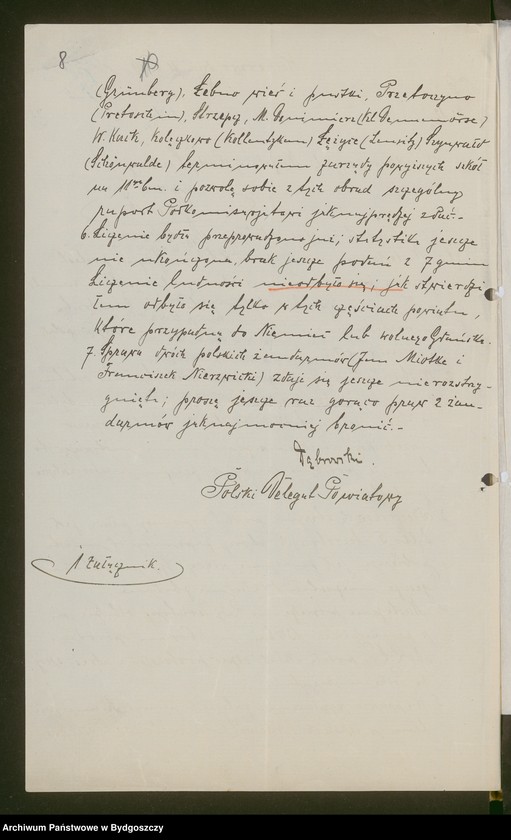 8
(Grünberg), Łebno wieś i pustki, Przetoczyno
(Pretoschin), Strzepcz, M. Donimierz (Kl. Dennemörse)
W. Kack, Kolęczkowo (Kollentzkau) Łężyce (Lensitz) Szynwałd
(Schönwalde) terminowałem zarządy powyższych szkół
na 11go bm. i pozwolę sobie z tych obrad szczególny
raport Podkomisarjatowi jaknajprędzej złoż-
6. Liczenie bydła przeprowadzono już; statystika jeszcze
nie ukończona, brak jeszcze podań z 7 gmin
Liczenie ludności nieodbyło się, jak stwierdzi
łem odbyło się tylko w tych częściach powiatu,
które przypadną do Niemiec lub wolnego Gdańska.
7. Sprawa dwóch polskich żandarmów (Jan Miotke i
Franciszek Nierzwicki) zdaje się jeszcze nierozstrzy-
gnięta; proszę jeszcze raz gorąco praw 2 żan-
darmów jaknajmocniej bronić.-
Dąbrowski.
Polski Delegat Powiatowy
1 załącznik.
Archiwum Państwowe w Bydgoszczy